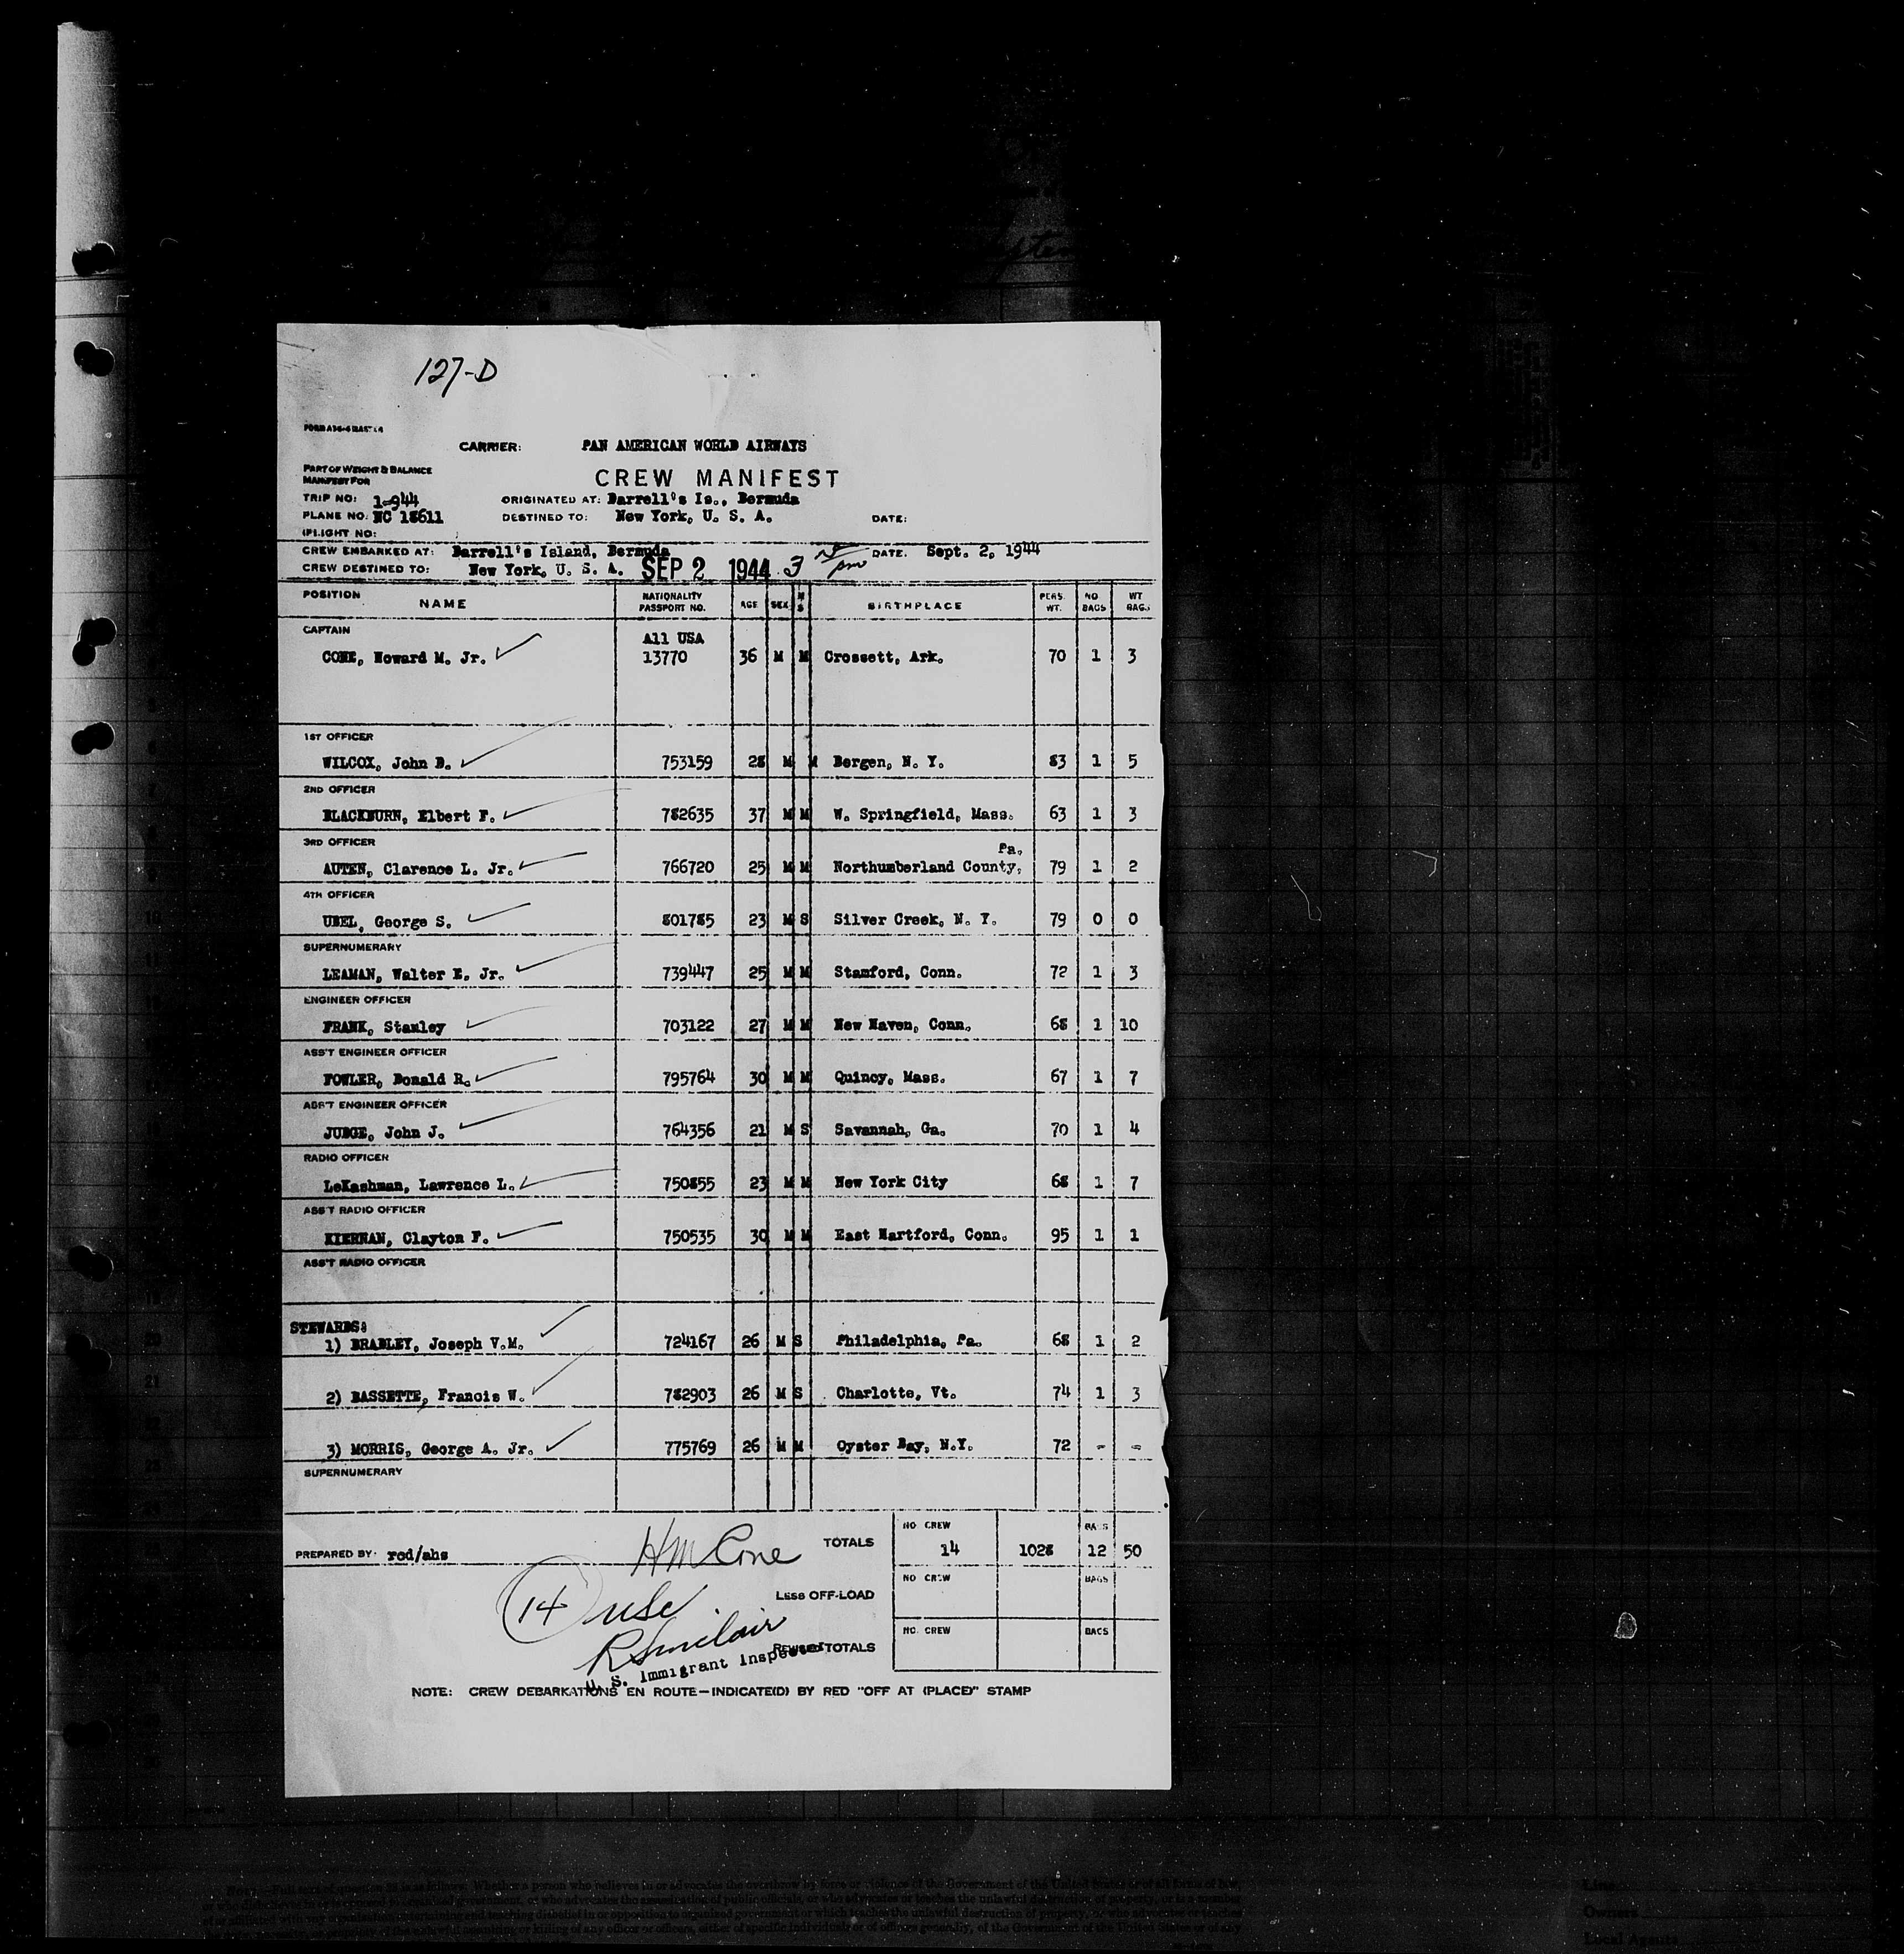 127-D
CARRIER: PAN AMERICAN WORLD AIRWAYS
PART OF WEIGHT & BALANCE
MANIFEST FOR
CREW MANIFEST
TRIP NO: 1-944 ORIGINATED AT: Darrell's Is., Bermuda
PLANE NO: NC 18611 DESTINED TO: New York, U. S. A. DATE:
FLIGHT NO:
CREW EMBARKED AT: Darrell's Island, Bermuda DATE. Sept. 2, 1944
CREW DESTINED TO: New York, U. S. A. SEP 2 1944 3 pm
POSITION NAME NATIONALITY PASSPORT NO. AGE SEX M S BIRTHPLACE PERS. WT. NO BAGS WT BAGS
CAPTAIN All USA
CONE, Howard M. Jr. 13770 36 M M Crossett, Ark. 70 1 3
1ST OFFICER
WILCOX, John D. 753159 28 M M Bergen, N. Y. 83 1 5
2ND OFFICER
BLACKBURN, Elbert F. 782635 37 M M W. Springfield, Mass. 63 1 3
3RD OFFICER Pa.
AUTEN, Clarence L. Jr. 766720 25 M M Northumberland County, 79 1 2
4TH OFFICER
UBEL, George S. 801785 23 M S Silver Creek, N. Y. 79 0 0
SUPERNUMERARY
LEAMAN, Walter E. Jr. 739447 25 M M Stamford, Conn. 72 1 3
ENGINEER OFFICER
FRANK, Stanley 703122 27 M M New Haven, Conn. 68 1 10
ASS'T ENGINEER OFFICER
FOWLER, Donald R. 795764 30 M M Quincy, Mass. 67 1 7
ASS'T ENGINEER OFFICER
JUDGE, John J. 764356 21 M S Savannah, Ga. 70 1 4
RADIO OFFICER
LeKashman, Lawrence L. 750855 23 M M New York City 68 1 7
ASS'T RADIO OFFICER
KIERNAN, Clayton F. 750535 30 M M East Hartford, Conn. 95 1 1
ASS'T RADIO OFFICER
STEWARDS:
1) BRADLEY, Joseph V.M. 724167 26 M S Philadelphia, Pa. 68 1 2
2) BASSETTE, Francis W. 782903 26 M S Charlotte, Vt. 74 1 3
3) MORRIS, George A. Jr. 775769 26 M M Oyster Bay, N.Y. 72 - -
SUPERNUMERARY
NO CREW BAGS
PREPARED BY: red/ahs HM Cone TOTALS 14 1028 12 50
NO CREW BAGS
14 usc LESS OFF-LOAD
R Sinclair NO. CREW BAGS
U. S. Immigrant Inspector REVISED TOTALS
NOTE: CREW DEBARKATIONS EN ROUTE—INDICATE(D) BY RED "OFF AT (PLACE)" STAMP